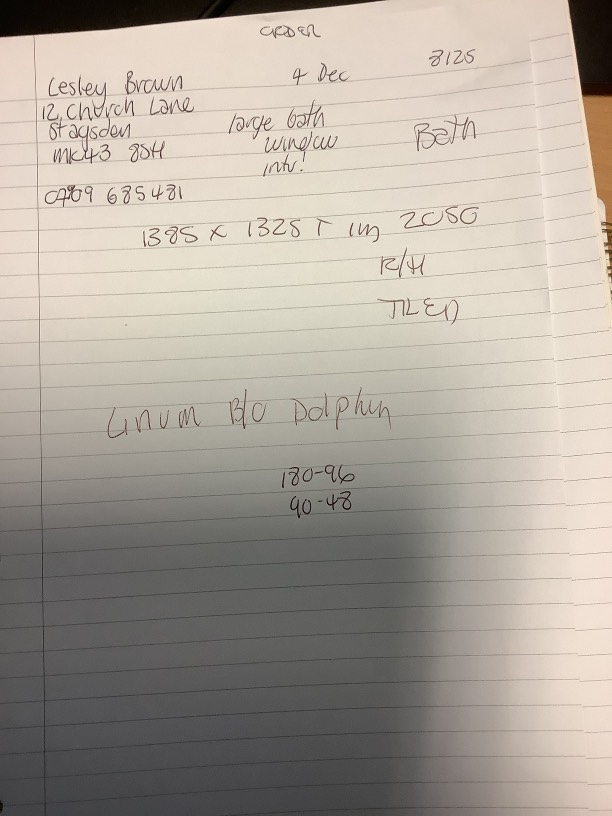 ORDER
Lesley Brown 4 Dec 8125
12, Church Lane
Stagsden large bath Bath
MK43 8SH window
intu!
685481
1385 x 1325 T 2050
R/H
TILED
Linum B/O Dolphin
180-96
90-48